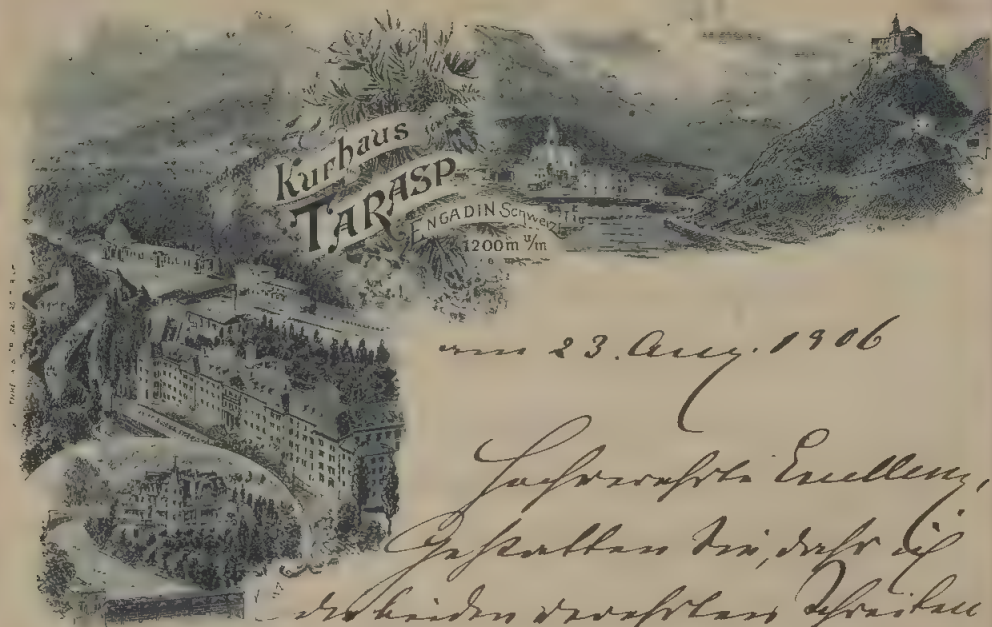 Kurhaus
TARASP
ENGADIN Schweiz
1200 m ü/m
am 23. Aug. 1906
Hochverehrte Excellenz,
Gestatten Sie, daß ich
die beiden verehrten Schreiben